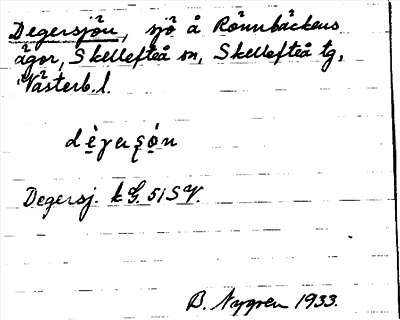 Degersjön, sjö å Rönnbäckens
ägor, Skellefteå sn, Skellefteå tg,
Västerb. l.
Degersj. k G. 51 SV.
B. Nygren 1933.